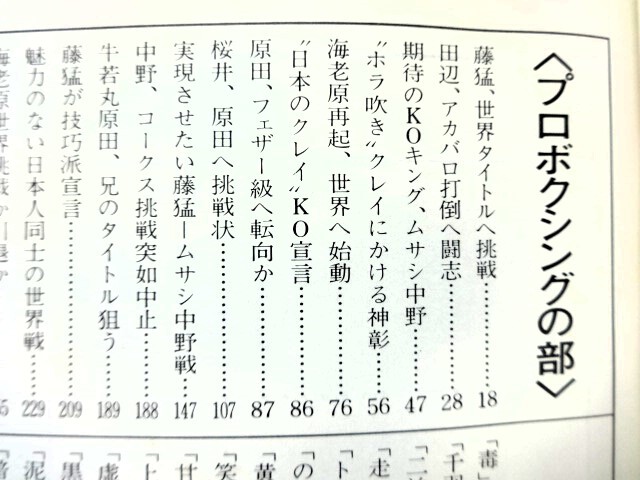 〈プロボクシングの部〉
藤猛、世界タイトルへ挑戦……………18
田辺、アカバロ打倒へ闘志……………28
期待のKOキング、ムサシ中野………47
〝ホラ吹き〟クレイにかける神彰………56
海老原再起、世界へ始動………………76
〝日本のクレイ〟KO宣言………………86
原田、フェザー級へ転向か……………87
桜井、原田へ挑戦状……………………107
実現させたい藤猛―ムサシ中野戦……147
中野、コークス挑戦突如中止…………188
牛若丸原田、兄のタイトル狙う………189
藤猛が技巧派宣言………………………209
魅力のない日本人同士の世界戦………229
海老原世界挑戦か引退か
「毒
「千
「二
「走
「ト
「の
「黄
「笑
「甘
「上
「虚
「黒
「泥